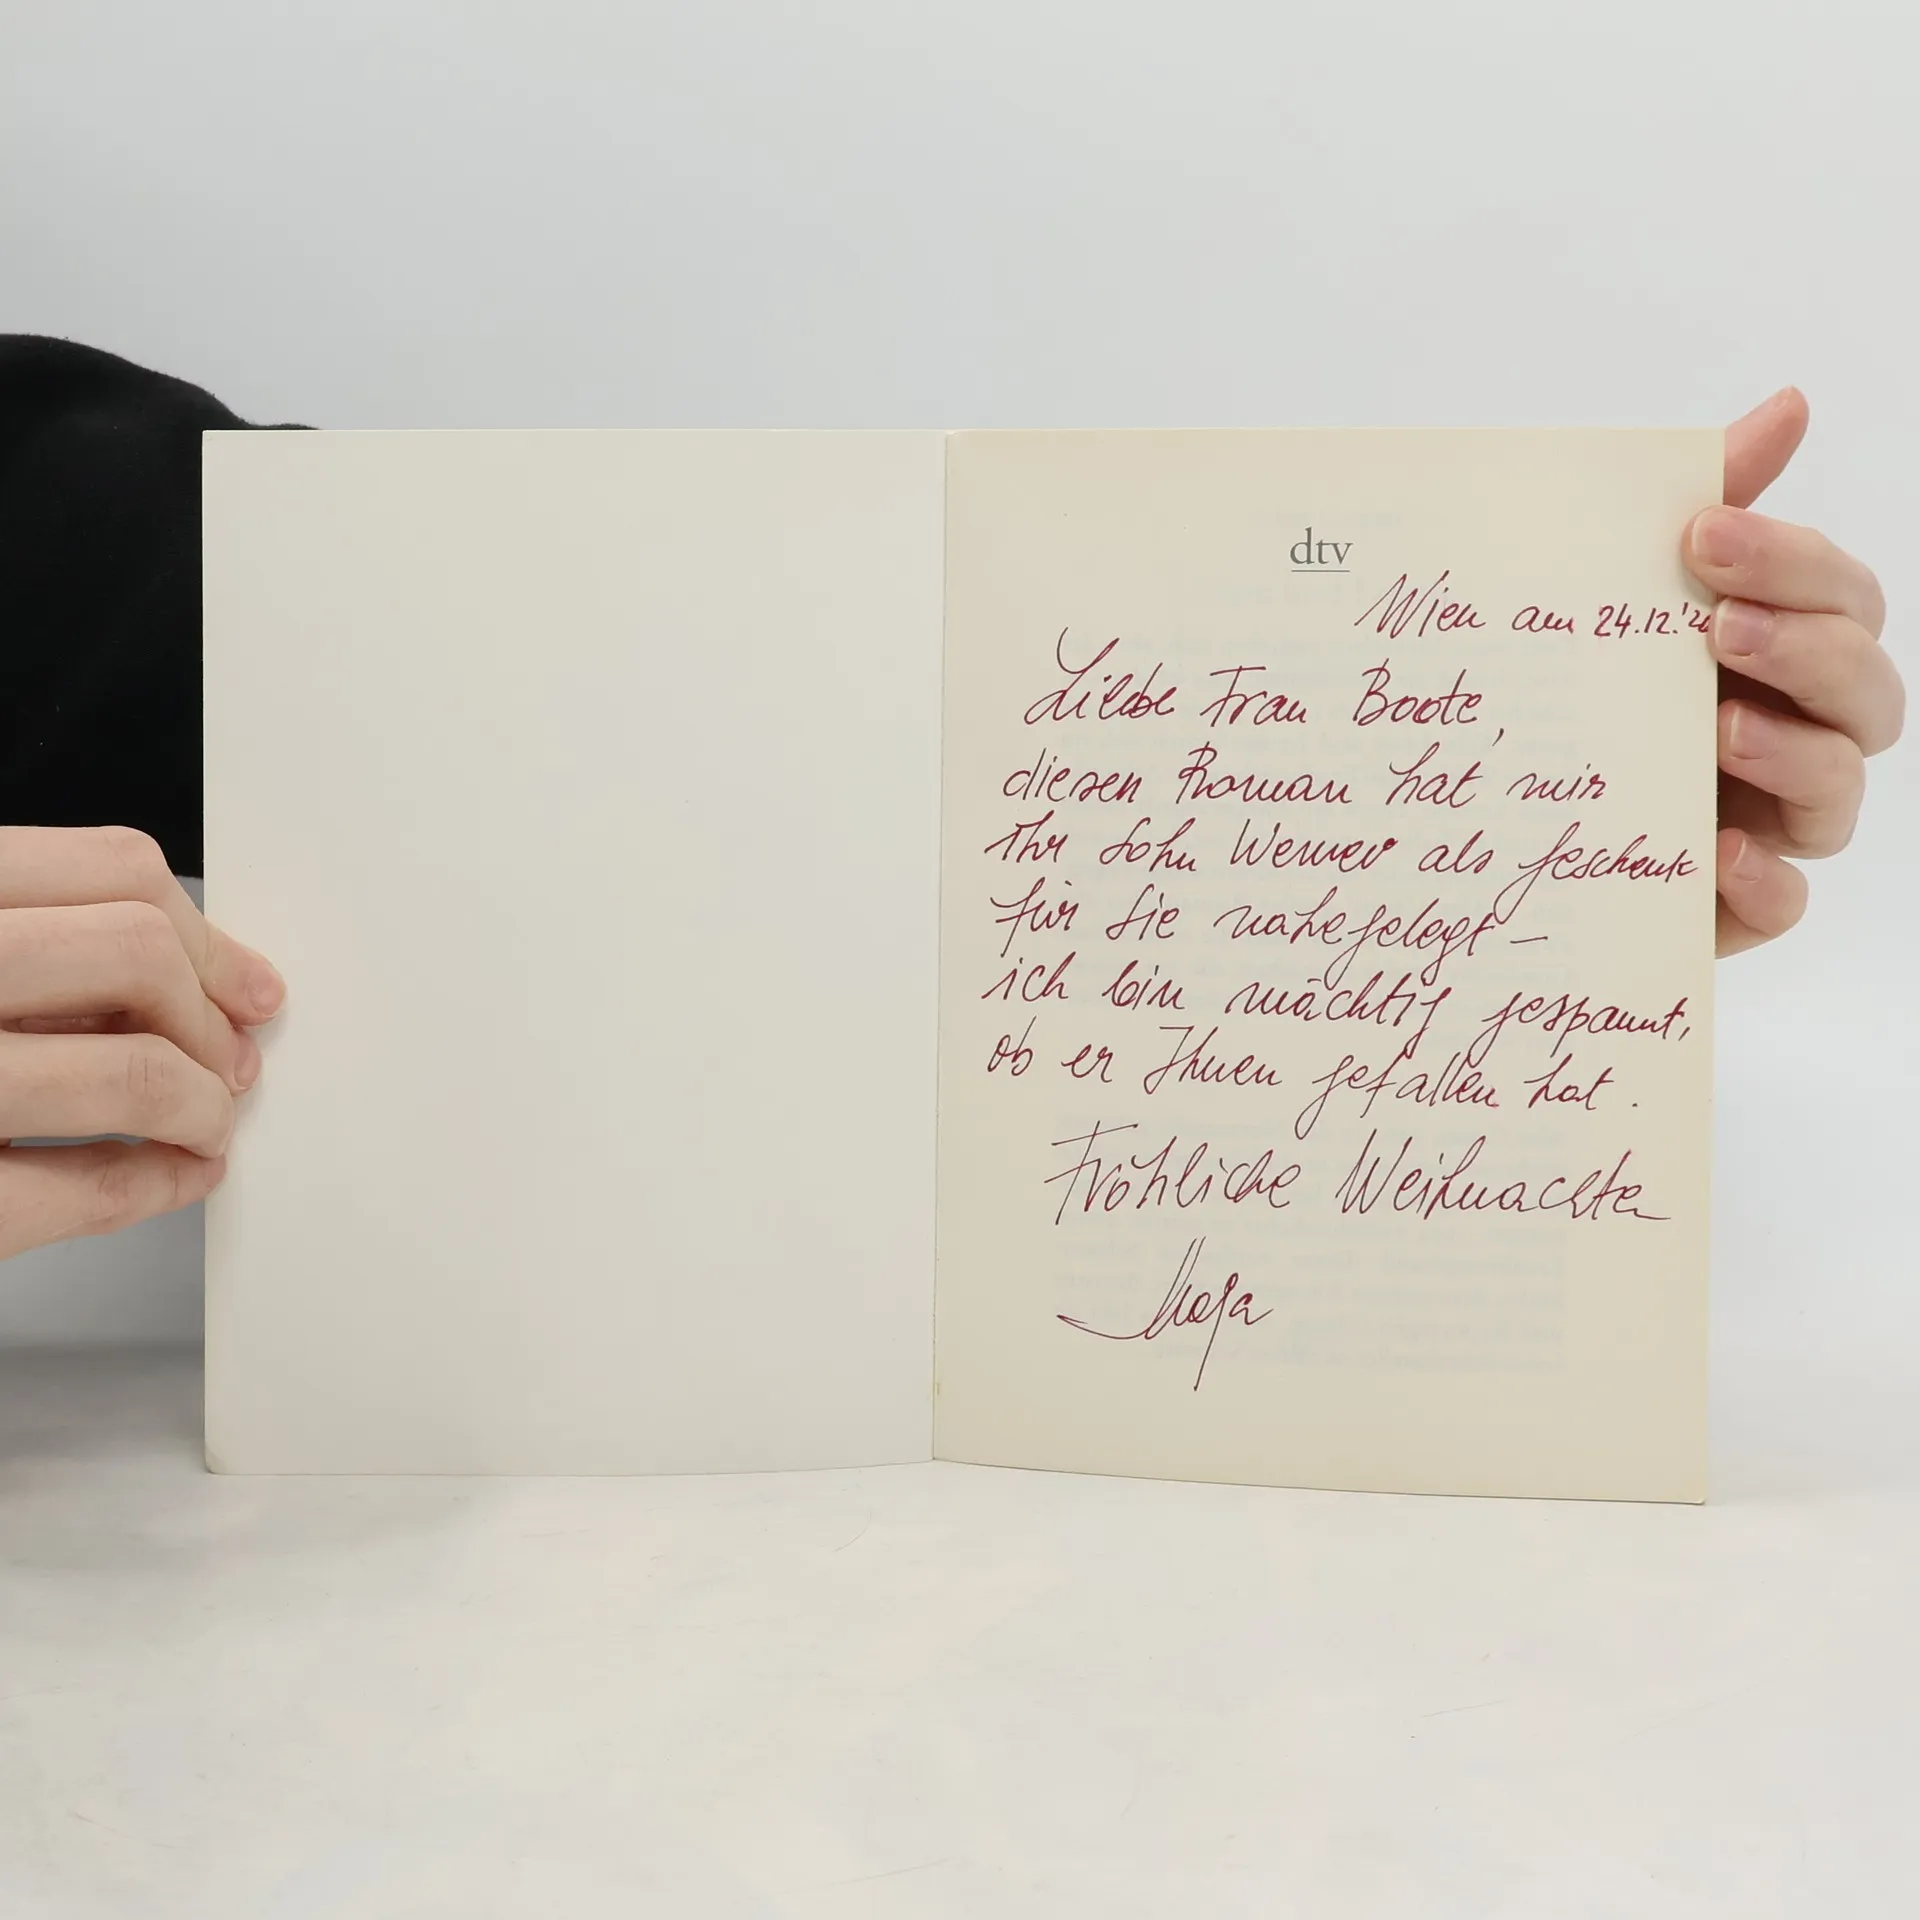 dtv
Wien am 24.12.'20
Liebe Frau Boote,
diesen Roman hat mir
Ihr Sohn Werner als Geschenk
für Sie nahegelegt –
ich bin mächtig gespannt,
ob er Ihnen gefallen hat.
Fröhliche Weihnachten